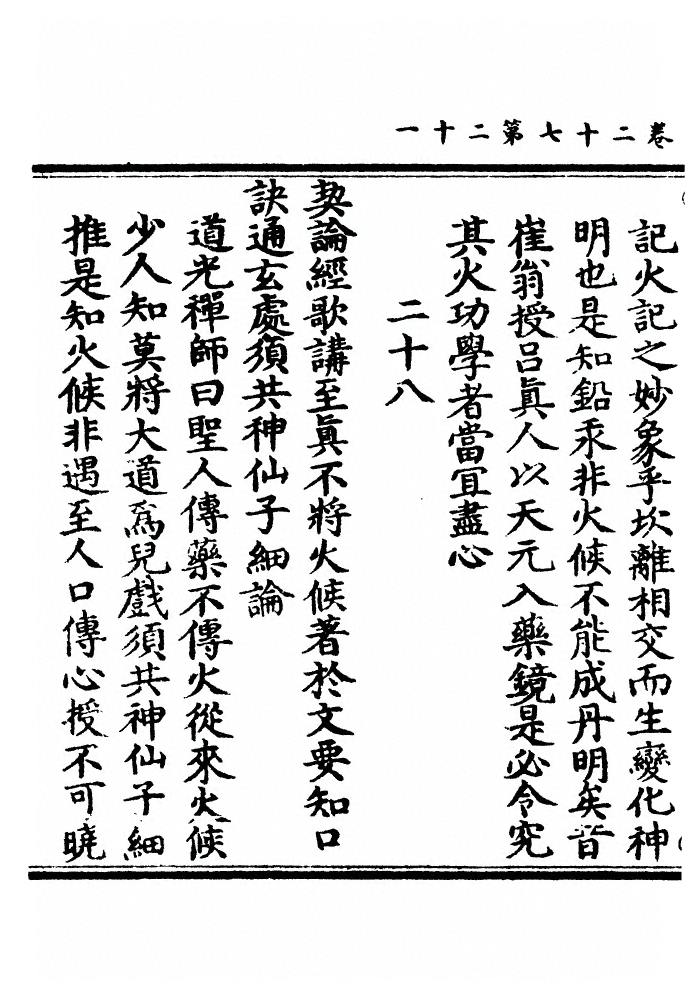 卷二十七第二十一
記火記之妙象乎坎離相交而生變化神
明也是知鉛汞非火候不能成丹明矣昔
崔翁授呂眞人以天元入藥鏡是必令究
其火功學者當宜盡心
二十八
契論經歌講至眞不將火候著於文要知口
訣通玄處須共神仙子細論
道光禪師曰聖人傳藥不傳火從來火候
少人知莫將大道爲兒戲須共神仙子細
推是知火候非遇至人口傳心授不可曉